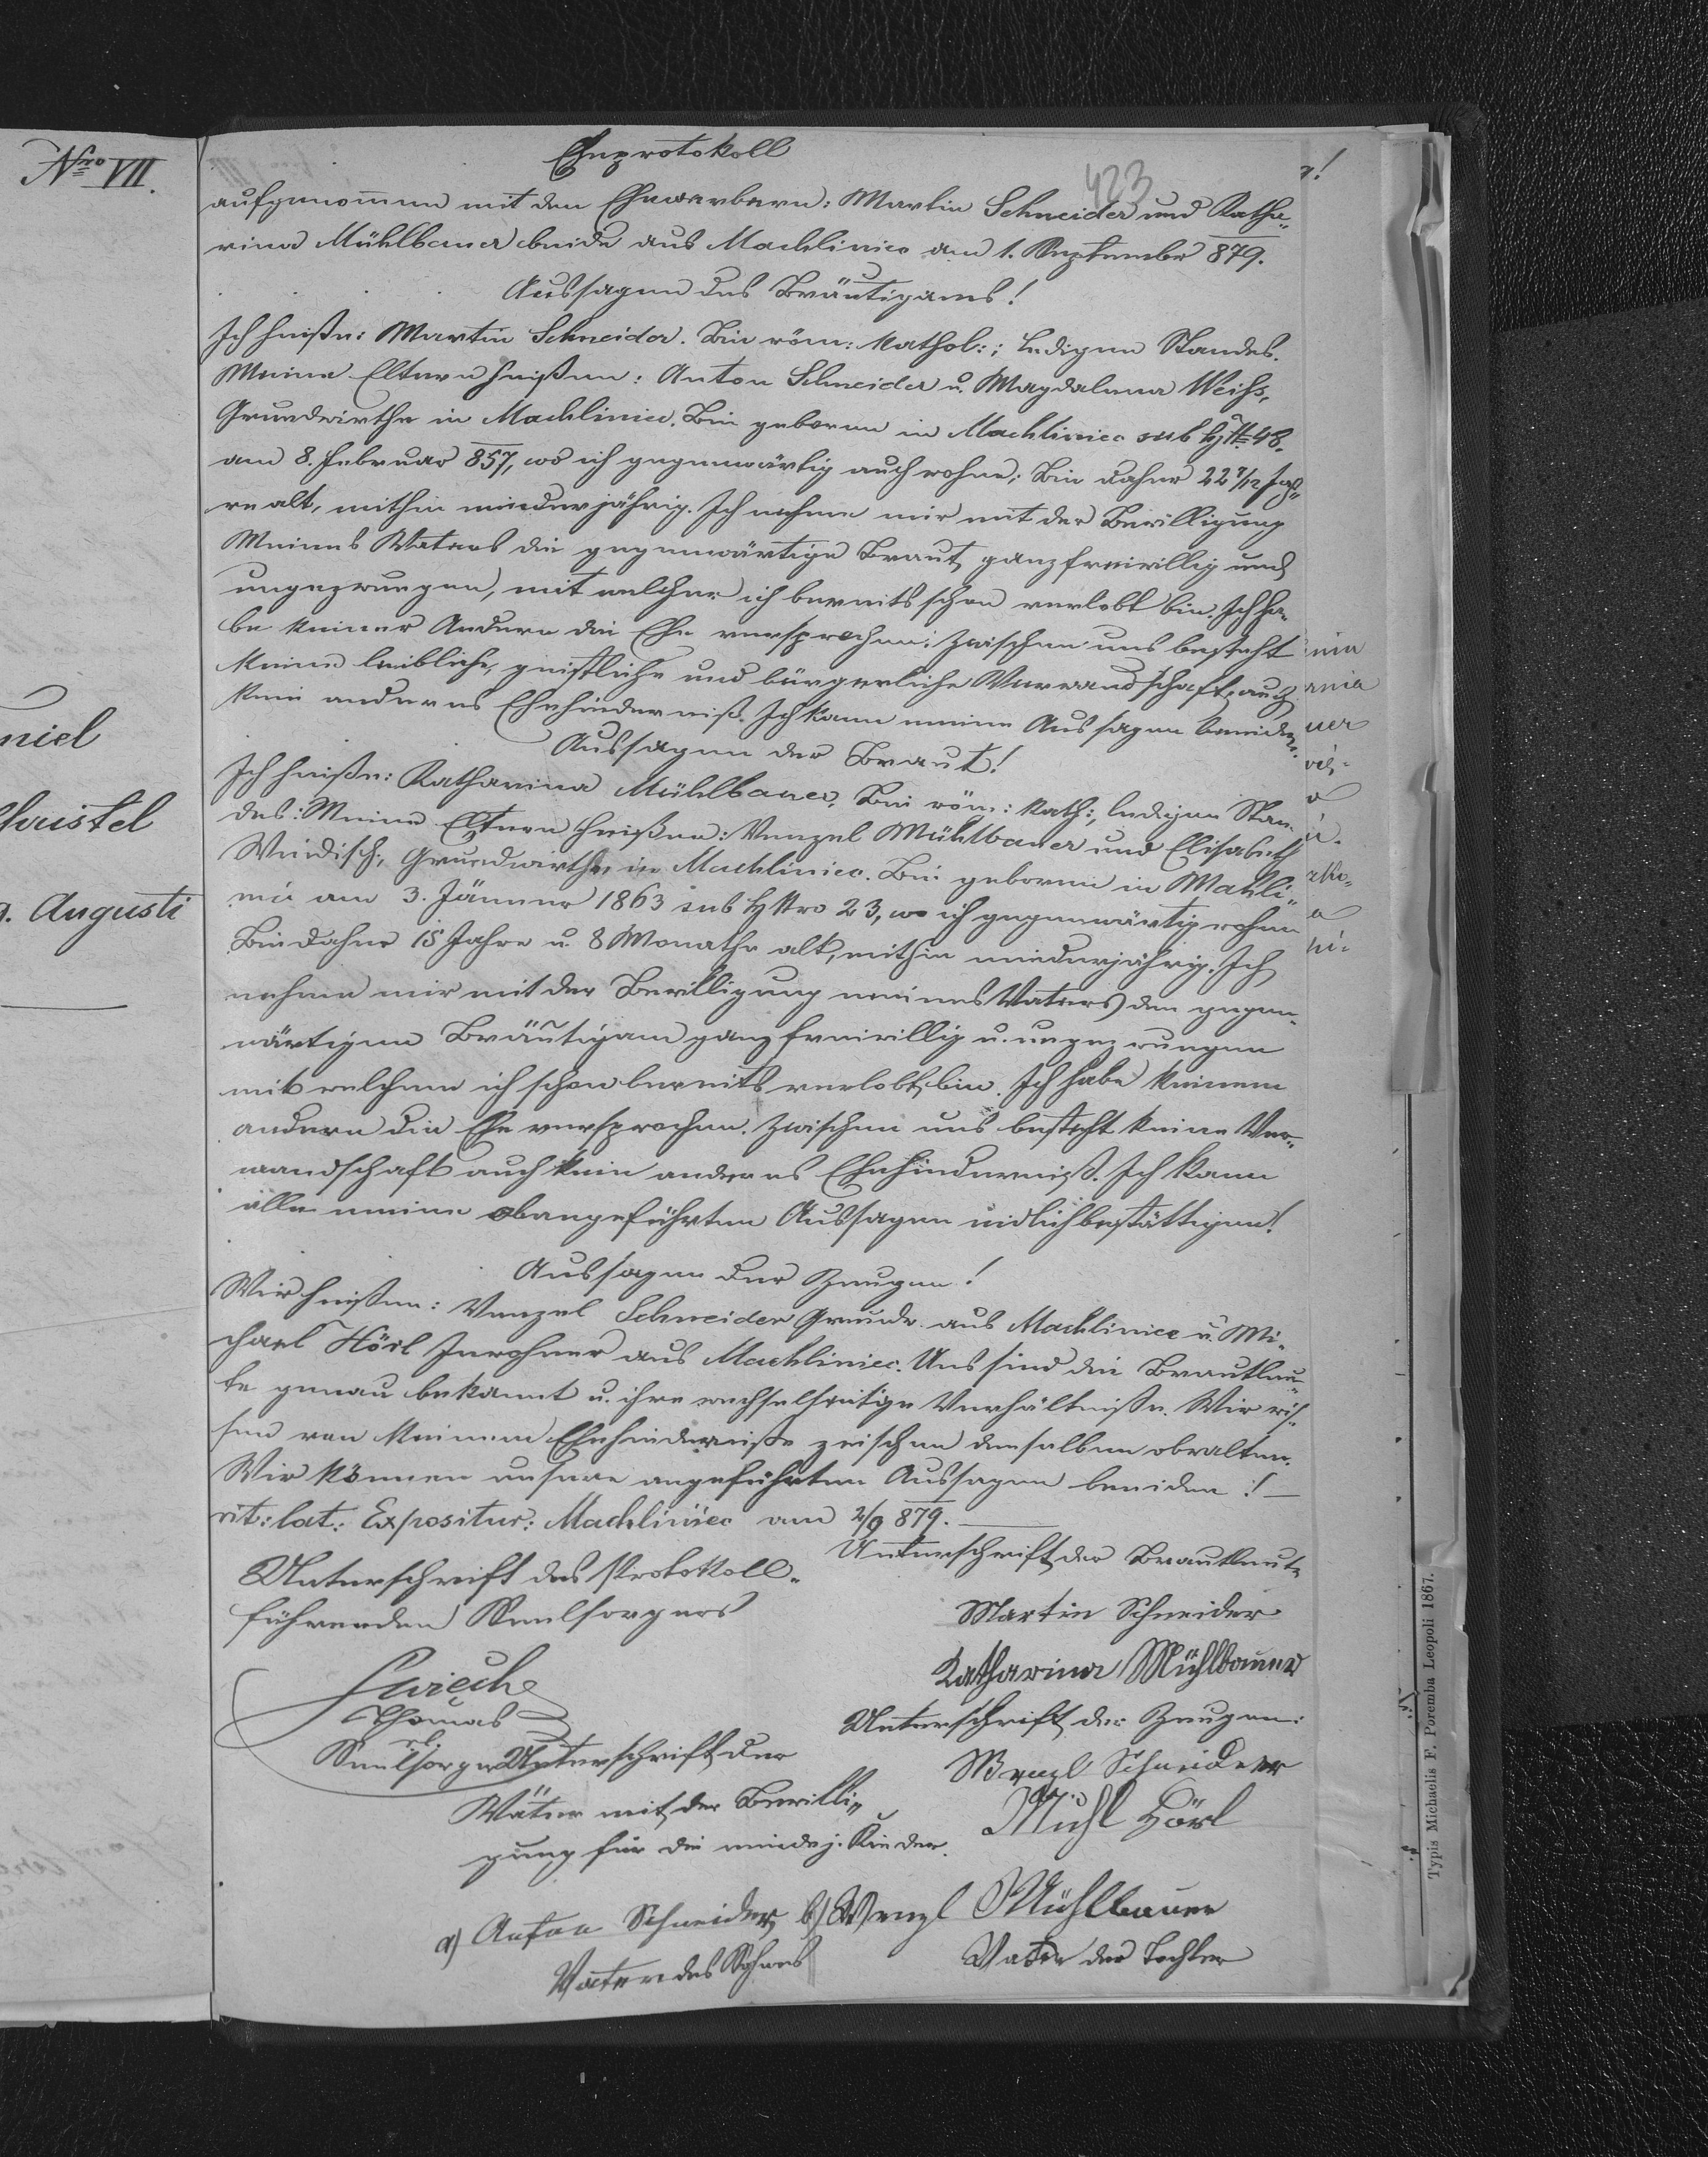 Nro VII.
niel
Christel
Augusti
Eheprotokoll
423
aufgenommen mit den Ehewerbern: Martin Schneider und Katha„
rina Mühlbauer beide aus Machliniec am 1. September 879.
Aussagen des Bräutigams!
Ich heiße: Martin Schneider. Bin röm: kathol:; ledigen Standes.
Meine Eltern heißen: Anton Schneider u. Magdalena Weihs,
Grundwirthe in Machliniec. Bin geboren in Machliniec sub H 48.
am 8. Februar 857, wo ich gegenwärtig auch wohne; Bin daher 22 7/12 Jah„
re alt, mithin minderjährig. Ich nehme mir mit der Bewilligung
Meines Vaters die gegenwärtige Braut ganz freiwillig und
ungezwungen, mit welcher ich bereits schon verlobt bin. Ich ha„
be keiner Andern die Ehe versprochen; zwischen uns besteht
keine leibliche, geistliche und bürgerliche Verwandschaft, auch
kein anderes Ehehinderniß. Ich kann meine Aussagen beeiden.
Aussagen der Braut!
Ich heiße: Katharina Mühlbauer, Bin röm: kath:, ledigen Stan„
des: Meine Eltern heißen: Venzel Mühlbauer und Elisabeth
Windisch, Grundwirthe in Machliniec. Bin geboren in Machli„
niec am 3. Jänner 1863 sub H Nro 23, wo ich gegenwärtig wohne
Bin daher 15 Jahre u. 8 Monathe alt, mithin minderjährig. Ich
nehme mir mit der Bewilligung meines Vaters den gegen„
wärtigen Bräutigam ganz freiwillig u. ungezwungen
mit welchem ich schon bereits verlobt bin. Ich habe keinem
andern die Ehe versprochen. Zwischen uns besteht keine Ver„
wandschaft auch kein anderes Ehehinderniß. Ich kann
alle meine obangeführten Aussagen eidlich bestättigen!
Aussagen der Zeugen!
Wir heißen: Venzel Schneider Grundw. aus Machliniec u. Mi„
chael Hörl Inwohner aus Machliniec. Uns sind die Brautleu„
te genau bekannt u. ihre wechselseitige Verhältniße. Wir wis„
sen von keinem Ehehinderniße zwischen denselben obwalten.
Wir können unsere angeführten Aussagen beeiden!
rit: lat: Expositur: Machliniec am 2/9 879.
Unterschrift des Protokoll„
führenden Seelsorgers
Świech
Thomas
Seelsorger
Unterschrift der Brautleute
Martin Schneider
Katharina Mühlbauer
Unterschrift der Zeugen:
Wenzl Schneider
Michl Hörl
Unterschrift der
Väter mit der Bewilli„
gung für die minderj. Kinder.
a) Anton Schneider b) Wenzl Mühlbauer
Vater des Sohnes Vater der Tochter
Typis Michaelis F. Poremba Leopoli 1867.